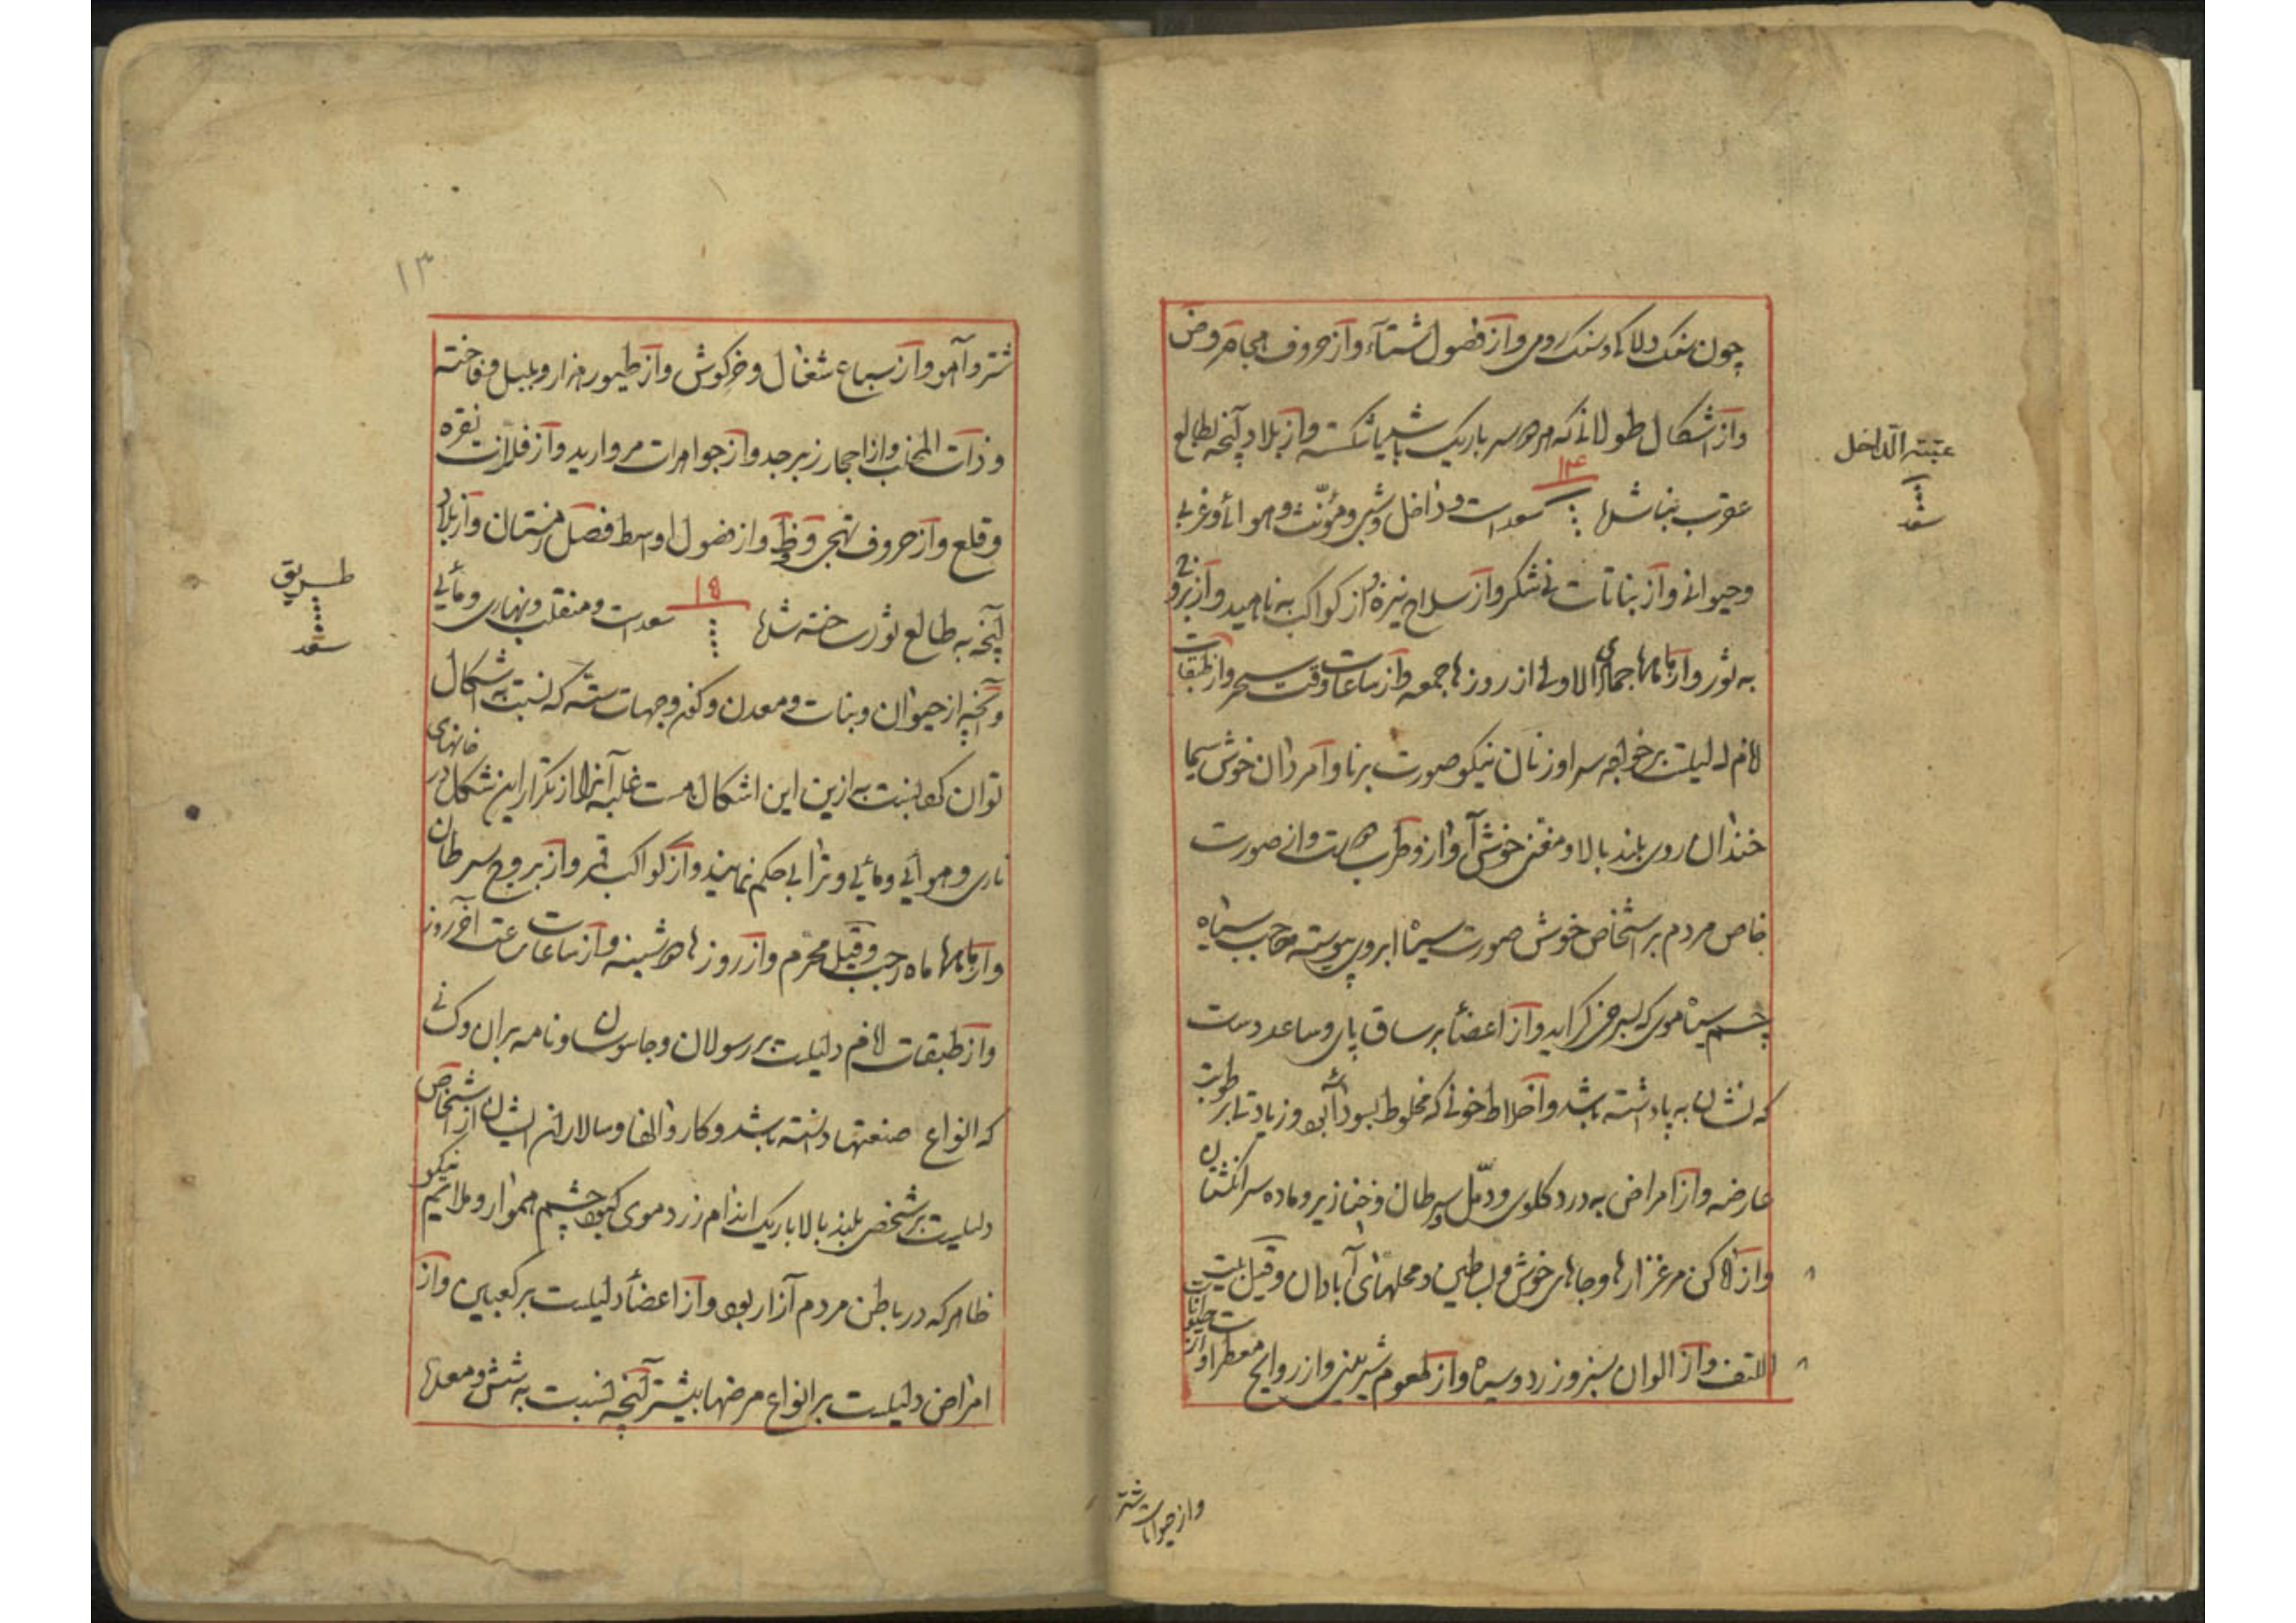 چون سنک ولاکی وسنک رومی واز فصول شتآء واز حروف هجا مر وض
واز اشکال طولانی که هر دو سر باریک باشد یا شکسته واز بلاد آنچه بطالع
عقرب بنا شدها ۱۴ سعد است وداخل وشبی ومؤنث وهوائی وغربی
وحیوانی واز نباتات نی شکر واز سلاح نیزه واز کواکب به ناهید واز بروج
به ثور واز ماهها جمادی الاولی از روزها جمعه واز ساعات وقت سحر واز طبقات
مردم دلیلست بر خواجه سرا وزنان نیکو صورت برنا وامردان خوش سیما
خندان روی بلند بالا ومغنی خوش آواز وطرب صورت
خاص مردم بر اشخاص خوش صورت سیاه ابروی پیوسته حاجب سیاه
چشم سیاه موی که بسرخی کراید واز اعضا بر ساق پای وساعد دست
که نشان به پا داشته باشد واز اخلاط خونی که مخلوط بسودا بود رطوبت
عارضه واز امراض به درد کلوی ودمّل وسرطان وخنازیر وماده سر انکشتان
واز اماکن مرغزارها وجاهای خوش ومحلهای آبادان وقیل بیت
التف واز الوان سبز وزرد وسیاه واز طعوم شیرینی واز روایح معطر واز حیوانات
واز حیوانات شتر
عتبة الداخل
سعد
۱۳
شتر وآهو واز سباع شغال وخرکوش واز طیور هزار وبلبل وفاخته
وذات المخلب واز احجار زبرجد واز جواهرات مروارید واز فلزات نقره
وقلع واز حروف تهجی وظ واز فصول اوسط فصل زمستان واز بلاد
آنچه به طالع ثور ساخته شدها ۱۵ سعد است ومنقلب ونهاری ومائی
وآنچه از حیوان ونبات ومعدن وجهات سته که نسبت به اشکال
توان کرد نسبت به ازین این اشکال هست غلبه آنرا از تکرار این شکل در خانهای
ناری وهوائی ومائی وترابی حکم نمایند واز کواکب قمر واز بروج سرطان
واز ماهها ماه رجب وقیل محرم واز روزها دوشنبه واز ساعات ساعت آخر روز
واز طبقات مردم دلیلست بر رسولان وجاسوسان ونامه بران وکسانی
که انواع صنعتها دانسته باشد وکاروانها وسالاران ایشان از اشخاص
دلیلست بر شخص بلند بالا باریک اندام زرد موی کبود چشم هموار وملایم نیکو
ظاهر که در باطن مردم آزار بود واز اعضا دلیلست بر کعبین واز
امراض دلیلست بر انواع مرضها بیشتر آنچه نسبت به شش ومعدها
طریق
سعد